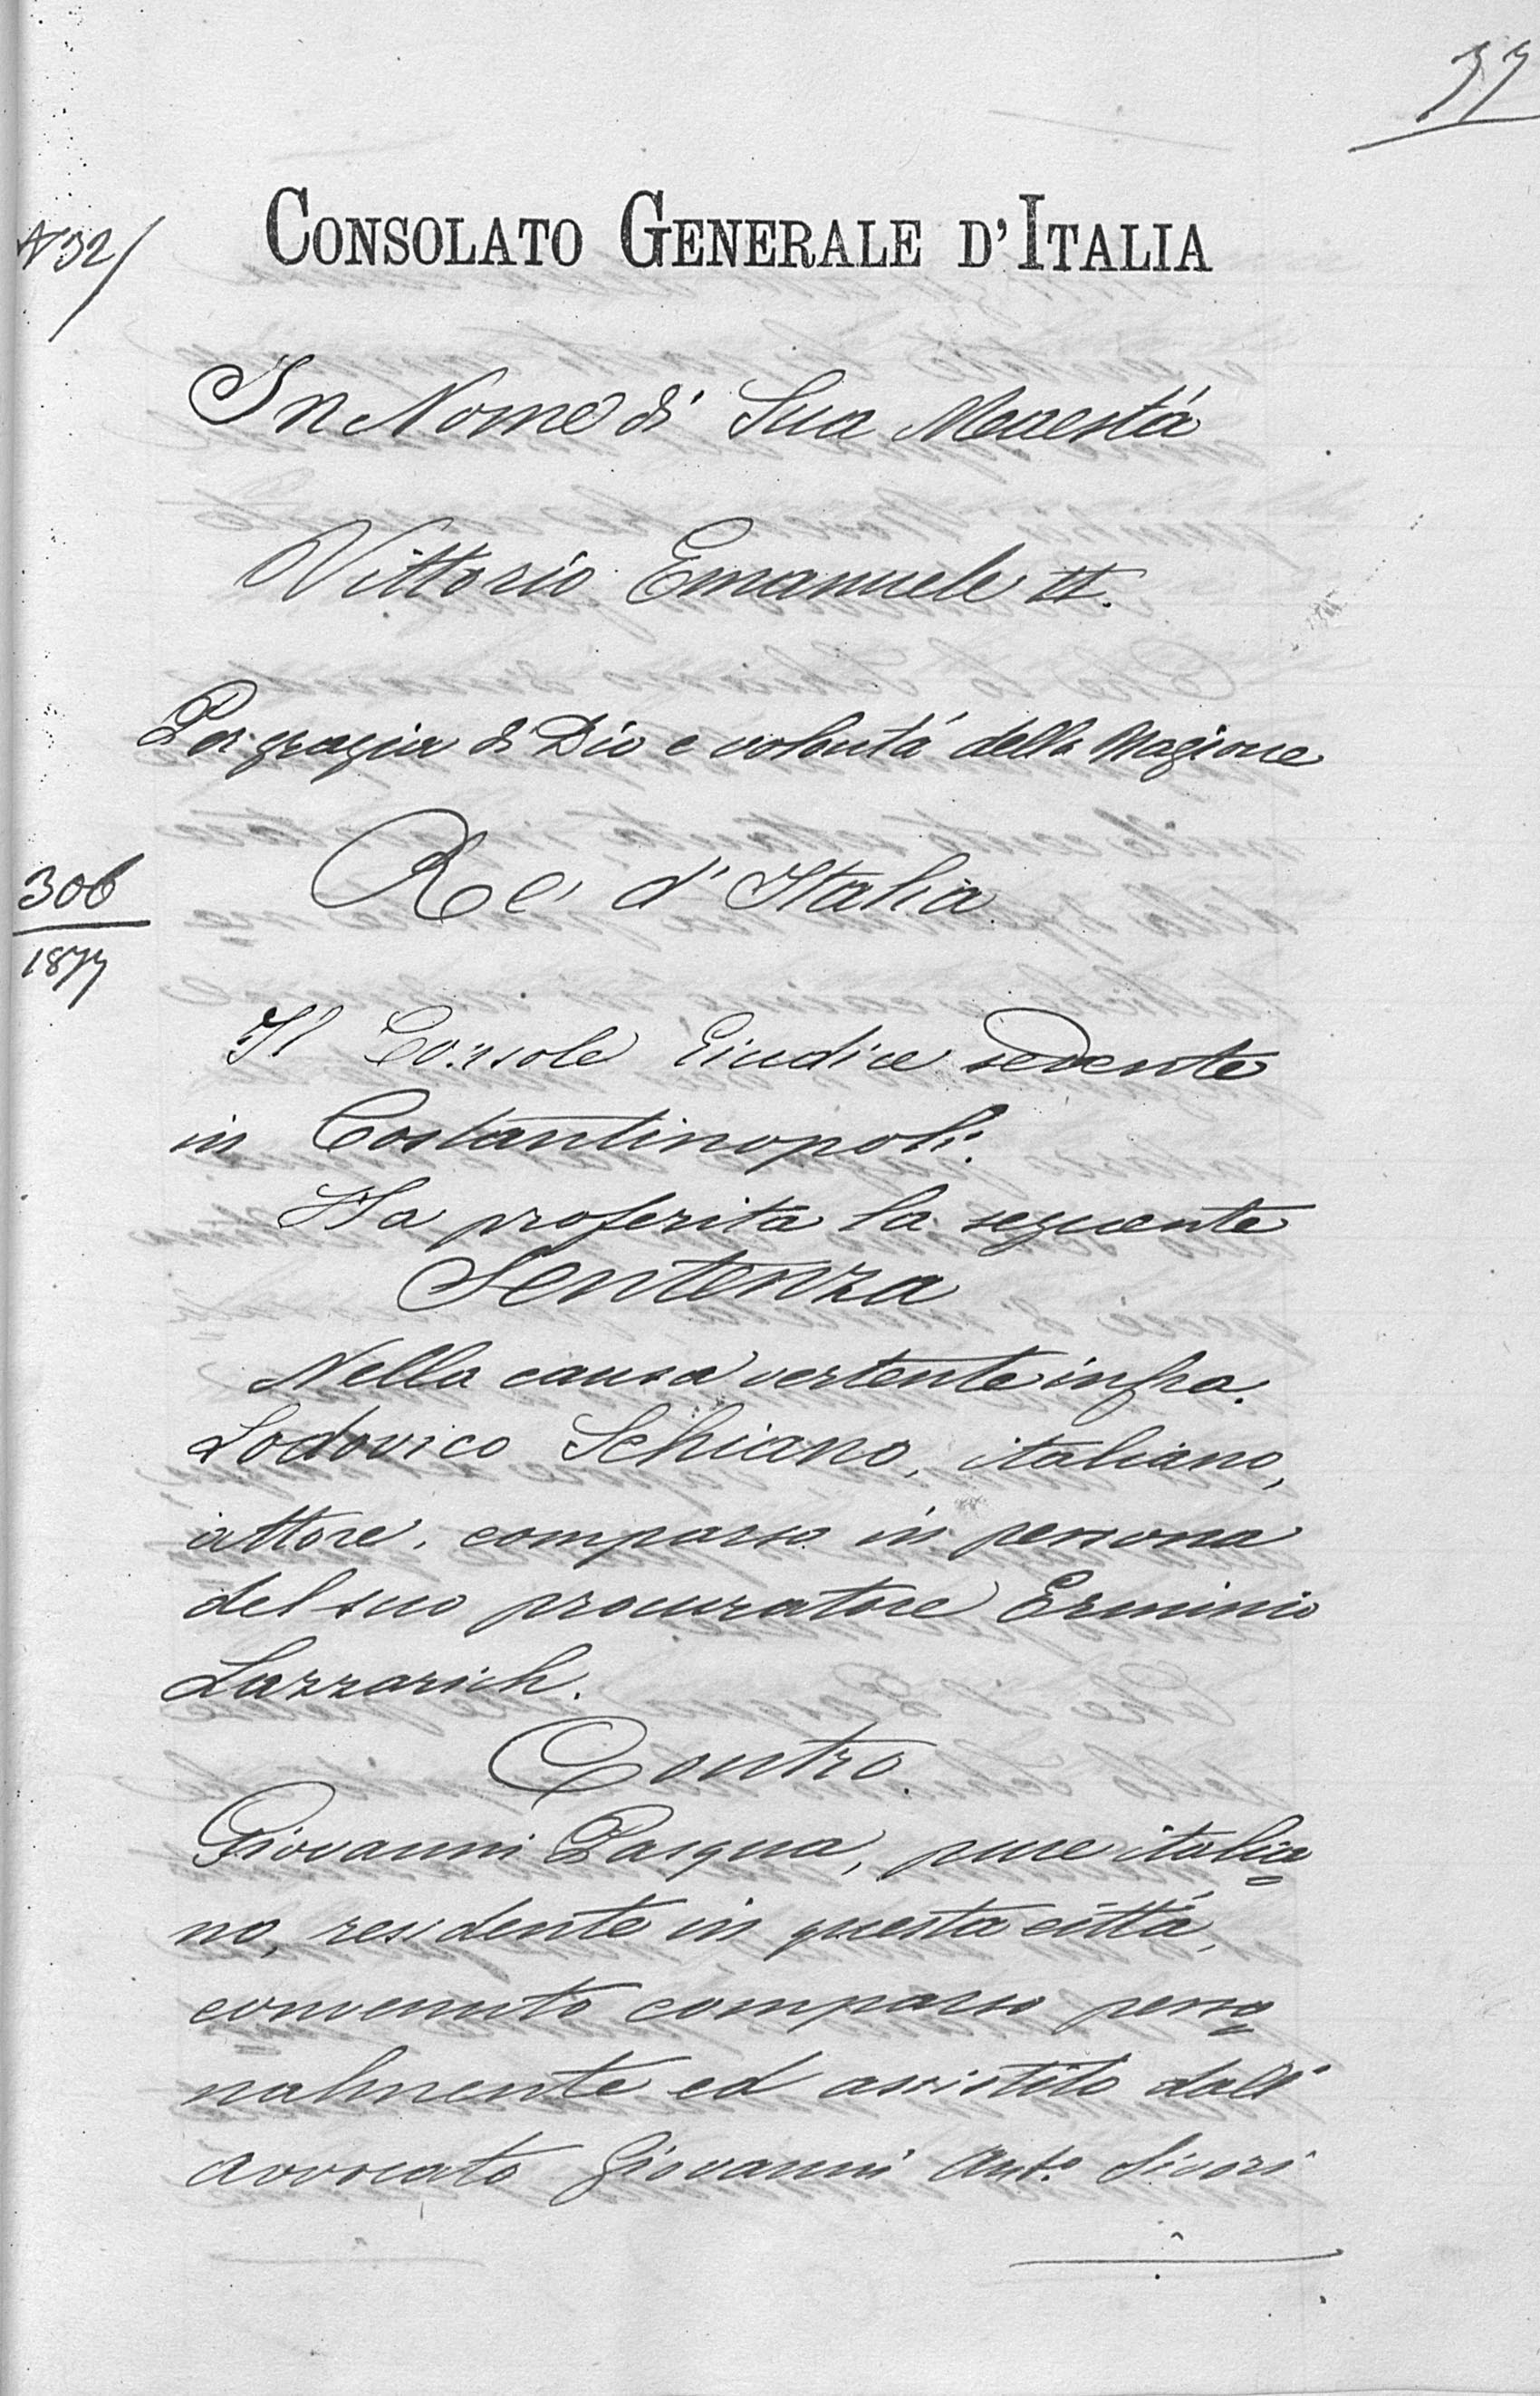 37
N 32/
CONSOLATO GENERALE D'ITALIA
In Nome di Sua Maestá
Vittorio Emanuele II.
Per grazia di Dio e volontá della Nazione
306
1877
Re d'Italia
Il Console Giudice sedente
in Costantinopoli.
Ha proferita la seguente
Sentenza
Nella causa vertente infra.
Lodovico Schiano, italiano,
attore, comparso in persona
del suo procuratore Erminio
Lazzarich.
Contro
Giovanni Pasqua, pure italia=
no, residente in questa cittá,
convenuto comparso perso=
nalmente ed assistito dall'
avvocato Giovanni Ant.o Sivori